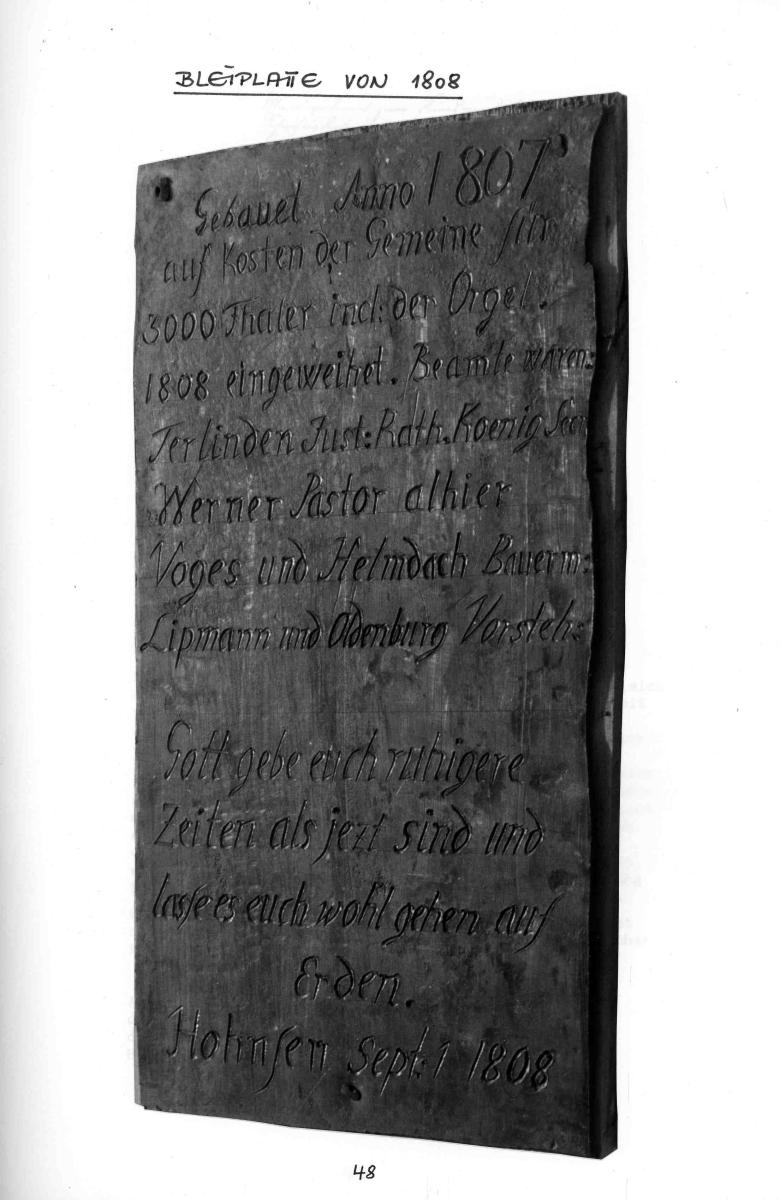 BLEIPLATTE VON 1808
Gebauet Anno 1807
auf Kosten der Gemeine für
3000 Thaler incl: der Orgel.
1808 eingeweihet. Beamte waren:
Terlinden Just: Rath. Koenig
Werner Pastor alhier
Voges und Helmdach Bauerm:
Lipmann und Oldenburg Vorsteh:
Gott gebe euch ruhigere
Zeiten als jezt sind und
lasse es euch wohl gehen auf
Erden.
Hohnsen Sept: 1 1808
48